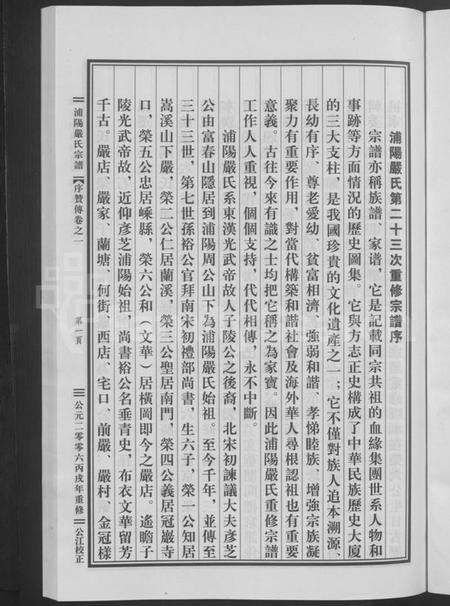 浦陽嚴氏第二十三次重修宗譜序
宗譜亦稱族譜、家谱，它是記載同宗共祖的血緣集團世系人物和
事跡等方面情況的歷史圖集。它與方志正史構成了中華民族歷史大廈
的三大支柱，是我國珍貴的文化遺產之一；它不僅對族人追本溯源、
長幼有序、尊老愛幼、貧富相濟、強弱和諧、孝悌睦族、增強宗族凝
聚力有重要作用，對當代構築和諧社會及海外華人尋根認祖也有重要
意義。古往今來有識之士均把它稱之為家寶。因此浦陽嚴氏重修宗譜
工作人人重視，個個支持，代代相傳，永不中斷。
浦陽嚴氏系東漢光武帝故人子陵公之後裔，北宋初諫議大夫彥芝
公由富春山隱居到浦陽周公山下為浦陽嚴氏始祖。至今千年，並傳至
三十三世，第七世孫裕公官拜南宋初禮部尚書，生六子，榮一公知居
嵩溪山下嚴，榮二公仁居蘭溪，榮三公聖居南門，榮四公義居冠巖寺
口，榮五公忠居嵊縣，榮六公和（文華）居橫岡即今之嚴店。遙瞻子
陵光武帝故，近仰彥芝浦陽始祖，尚書裕公名垂青史，布衣文華留芳
千古。嚴店、嚴家、蘭塘、何街、西店、宅口、前嚴、嚴村、金冠樣
浦陽嚴氏宗譜 序贊傳卷之一 第一頁 公元二零零六丙戌年重修 公江校正